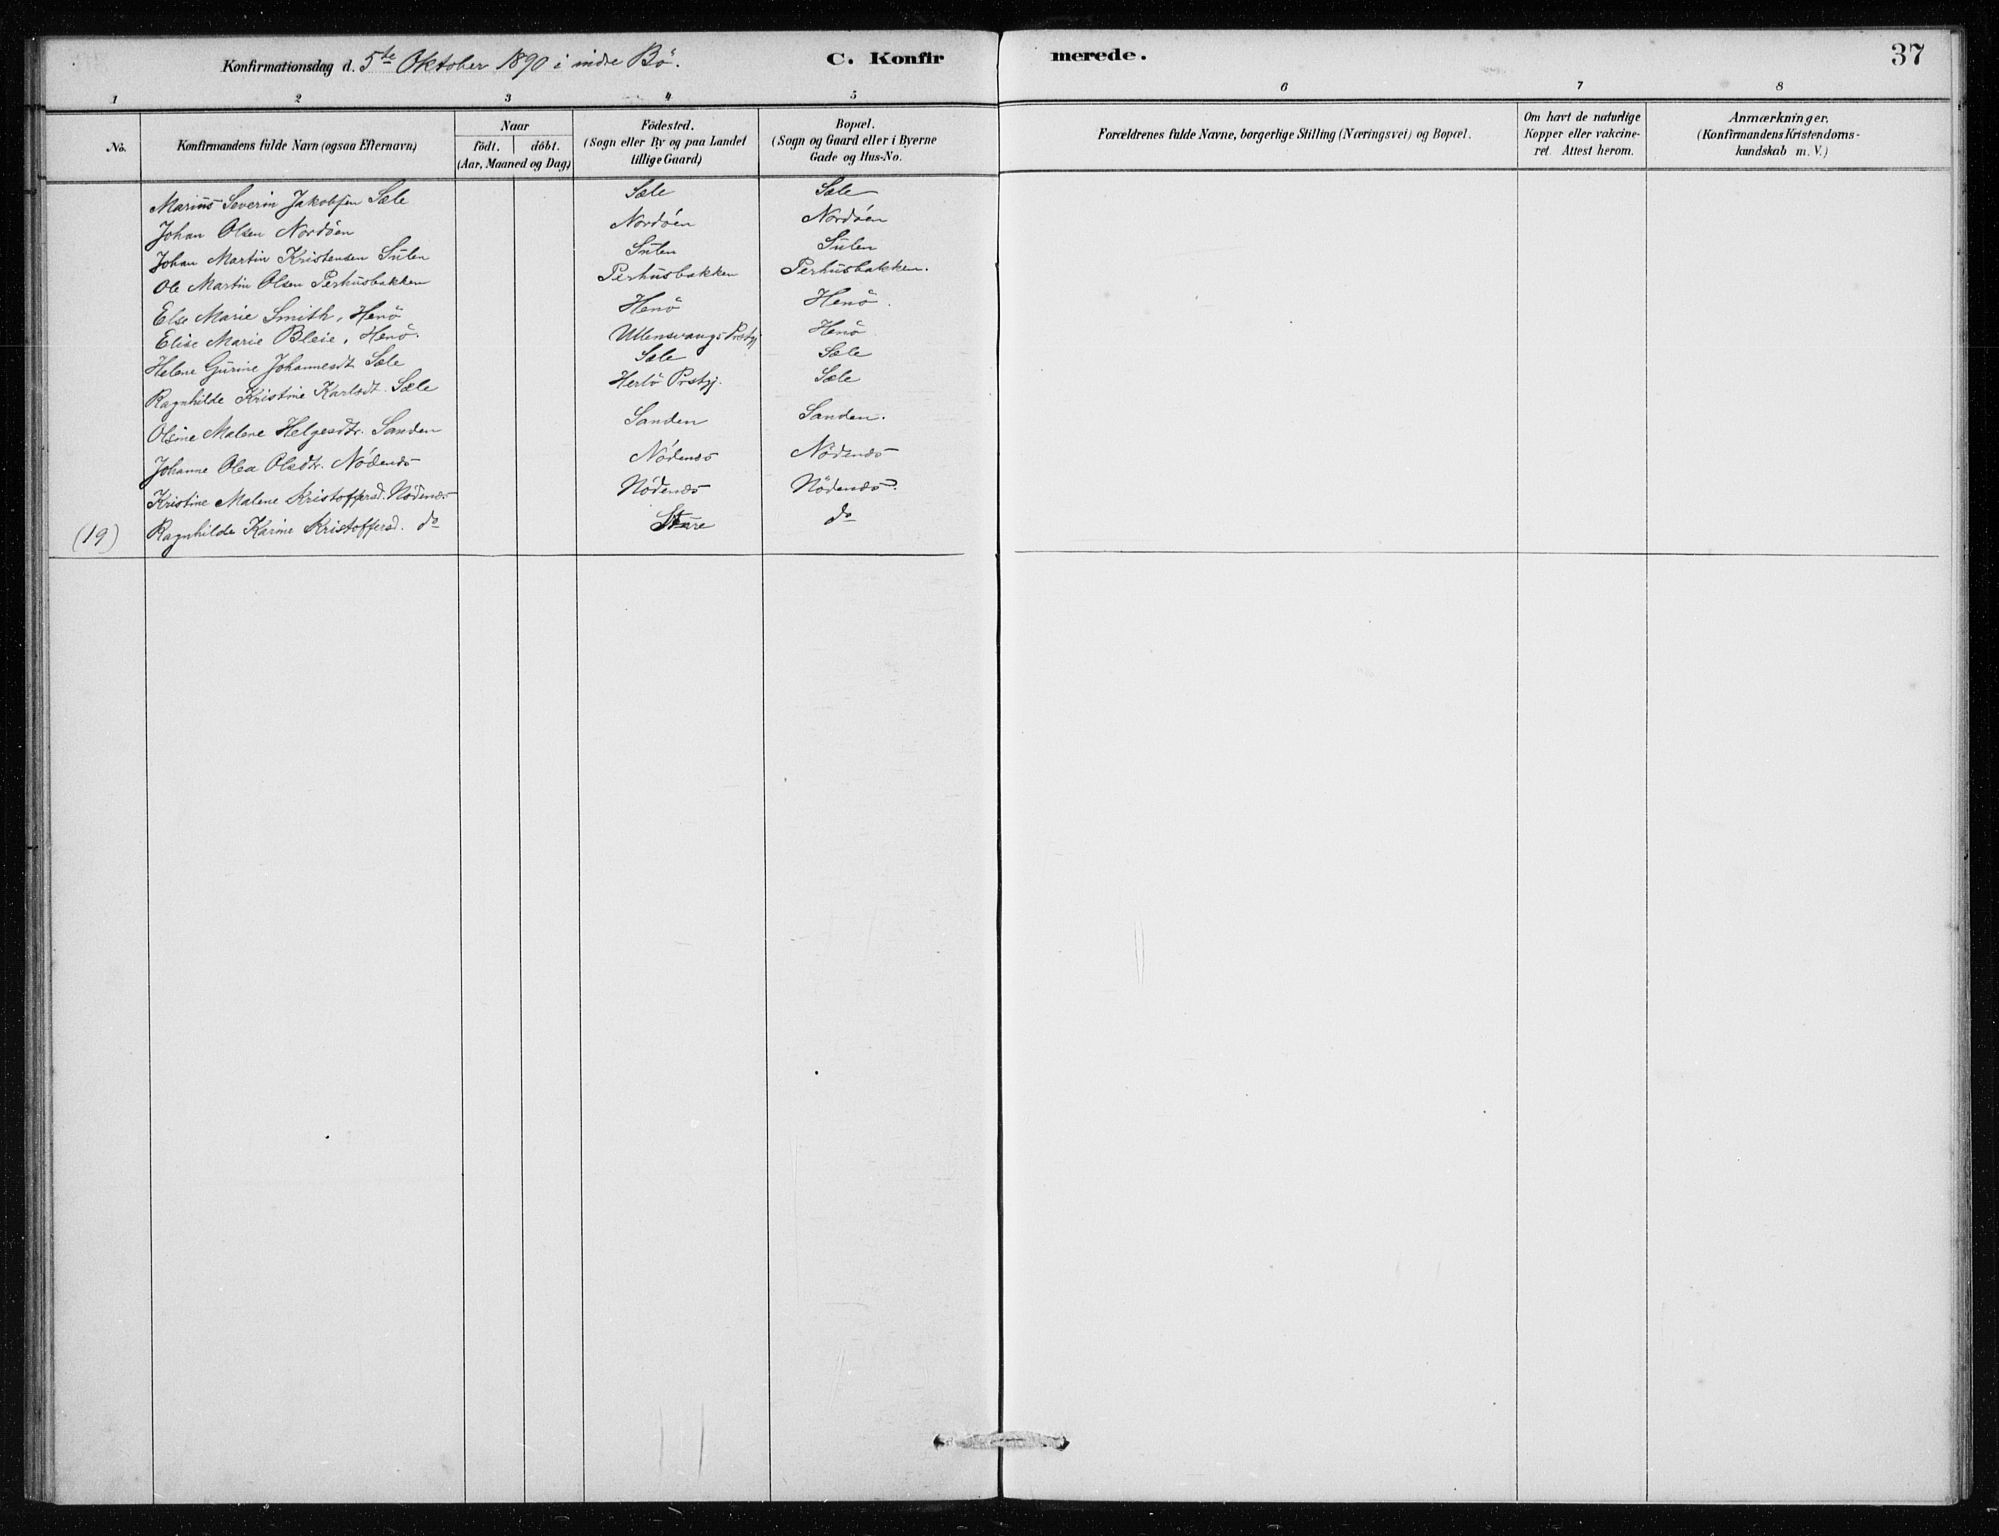 Konfirmationsdag d. 5te Oktober 1890 i indre Bö. C. Konfir merede. 37
1 2 3 4 5 6 7 8
No. Konfirmandens fulde Navn (ogsaa Efternavn) Naar födt. döbt. (Aar, Maaned og Dag) Födested. (Sogn eller By og paa Landet tillige Gaard) Bopæl. (Sogn og Gaard eller i Byerne Gade og Hus-No. Forældrenes fulde Navne, borgerlige Stilling (Næringsvei) og Bopæl. Om havt de naturlige Kopper eller vakcineret. Attest herom. Anmærkninger. (Konfirmandens Kristendomskundskab m. V.)
Marius Severin Jakobsen Sæle Sæle Sæle
Johan Olsen Nordöen Nordöen Nordöen
Johan Martin Kristensen Sulen Sulen Sulen
Ole Martin Olsen Perhusbakken Perhusbakken Perhusbakken.
Else Marie Smith, Henö Henö Henö.
Elise Marie Bleie, Henö. Ullensvangs Prstgj Henö
Helene Gurine Johannesdt Sæle Sæle Sæle
Ragnhilde Kristine Karlsdt. Sæle Herlö Prstgj. Sæle
Olsine Malene Helgesdtr. Sanden Sanden Sanden.
Johanne Olea Olsdtr. Nödenæs Nödenæs Nödenæs
Kristine Malene Kristoffersd. Nödenæs Nödenæs Nödenæs.
(19) Ragnhilde Karine Kristoffersd. do Stare do